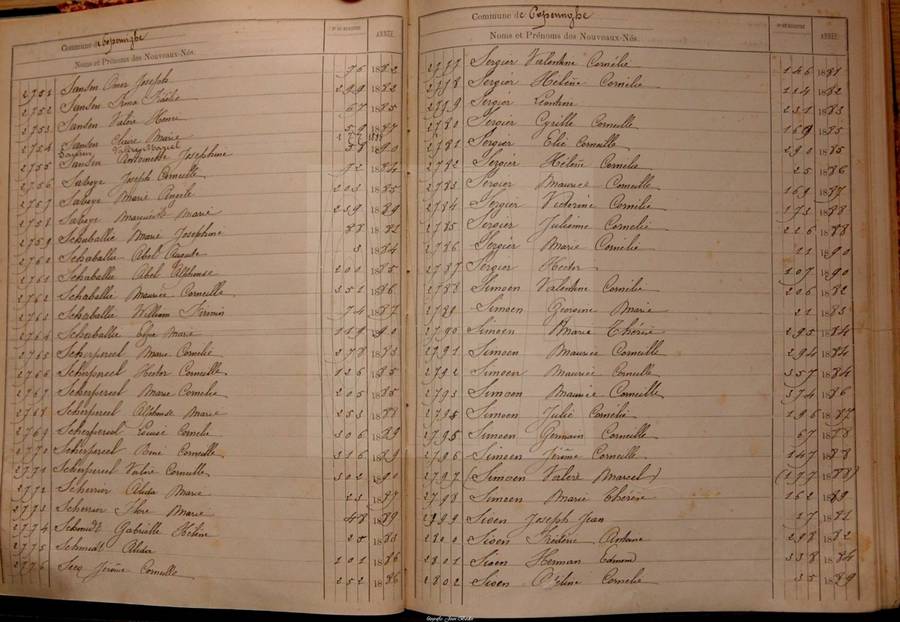 Commune de Popeninghe
Noms et Prénoms des Nouveaux-Nés.
N° DU REGISTRE
ANNÉE
2751 Sansen Omer Joseph 76 1882
2752 Sansen Irma 299 1882
2753 Sansen Valère Henri 67 1885
2754 Sansen Claire Marie 59 1887
2755 Sansen Antoinette Josephine 58 1890
2756 Saboye Joseph Corneille 92 1884
2757 Saboye Marie Angèle 203 1885
2758 Saboye Marguerite Marie 259 1889
2759 Schaballie Marie Josephine 88 1881
2760 Schaballie Abel Auguste 3 1884
2761 Schaballie Abel Alphonse 200 1885
2762 Schaballie Maurice Corneille 351 1886
2763 Schaballie William Firmin 74 1887
2764 Schaballie Marie 159 1890
2765 Scherpereel Marie Cornelie 278 1883
2766 Scherpereel Hector Corneille 126 1885
2767 Scherpereel Marie Cornelie 205 1885
2768 Scherpereel Alphonse Marie 253 1888
2769 Scherpereel Louise Cornelie 306 1889
2770 Scherpereel René Corneille 316 1889
2771 Scherpereel Valère Corneille 302 1890
2772 Scherrier Alida Marie 23 1887
2773 Scherrier Flore Marie 48 1889
2774 Schmidt Gabrielle Hélène 25 1883
2775 Schmidt Alida 101 1886
2776 Seco Jérôme Corneille 252 1886
Commune de Popeninghe
Noms et Prénoms des Nouveaux-Nés.
N° DU REGISTRE
ANNÉE
2777 Sergier Valentine Cornelie 146 1881
2778 Sergier Helène Cornelie 114 1882
2779 Sergier Leontine 231 1883
2780 Sergier Cyrille Corneille 169 1885
2781 Sergier Elie Corneille 290 1885
2782 Sergier Hélène Cornelie 25 1886
2783 Sergier Maurice Corneille 169 1887
2784 Sergier Victorine Cornelie 173 1888
2785 Sergier Julienne Cornelie 226 1888
2786 Sergier Marie Cornélie 11 1890
2787 Sergier Hector 107 1890
2788 Simoen Valentine Cornélie 206 1882
2789 Simoen Georgine Marie 21 1883
2790 Simoen Marie Thérèse 295 1884
2791 Simoen Maurice Corneille 294 1884
2792 Simoen Maurice Corneille 357 1884
2793 Simoen Maurice Corneille 374 1886
2795 Simoen Julie Cornélie 196 1887
2795 Simoen Germain Corneille 67 1878
2796 Simoen Jérôme Corneille 147 1888
2797 (Simoen Valère Marcel) (177 1888)
2798 Simoen Marie Thérèse 162 1889
2799 Sioen Joseph Jean 17 1881
2800 Sioen Antoine 298 1882
2801 Sioen Herman Edmond 338 1884
2802 Sioen Céline Cornelie 35 1889